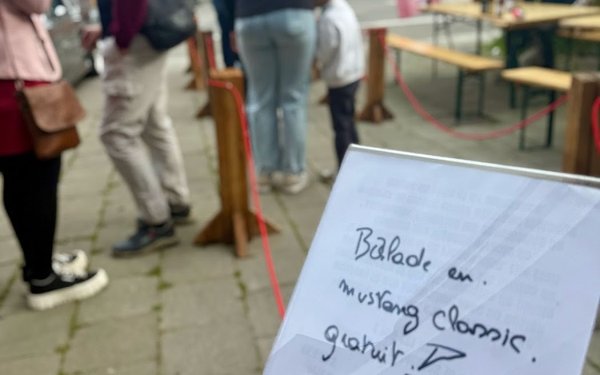 Balade en.
mustang classic.
gratuit.